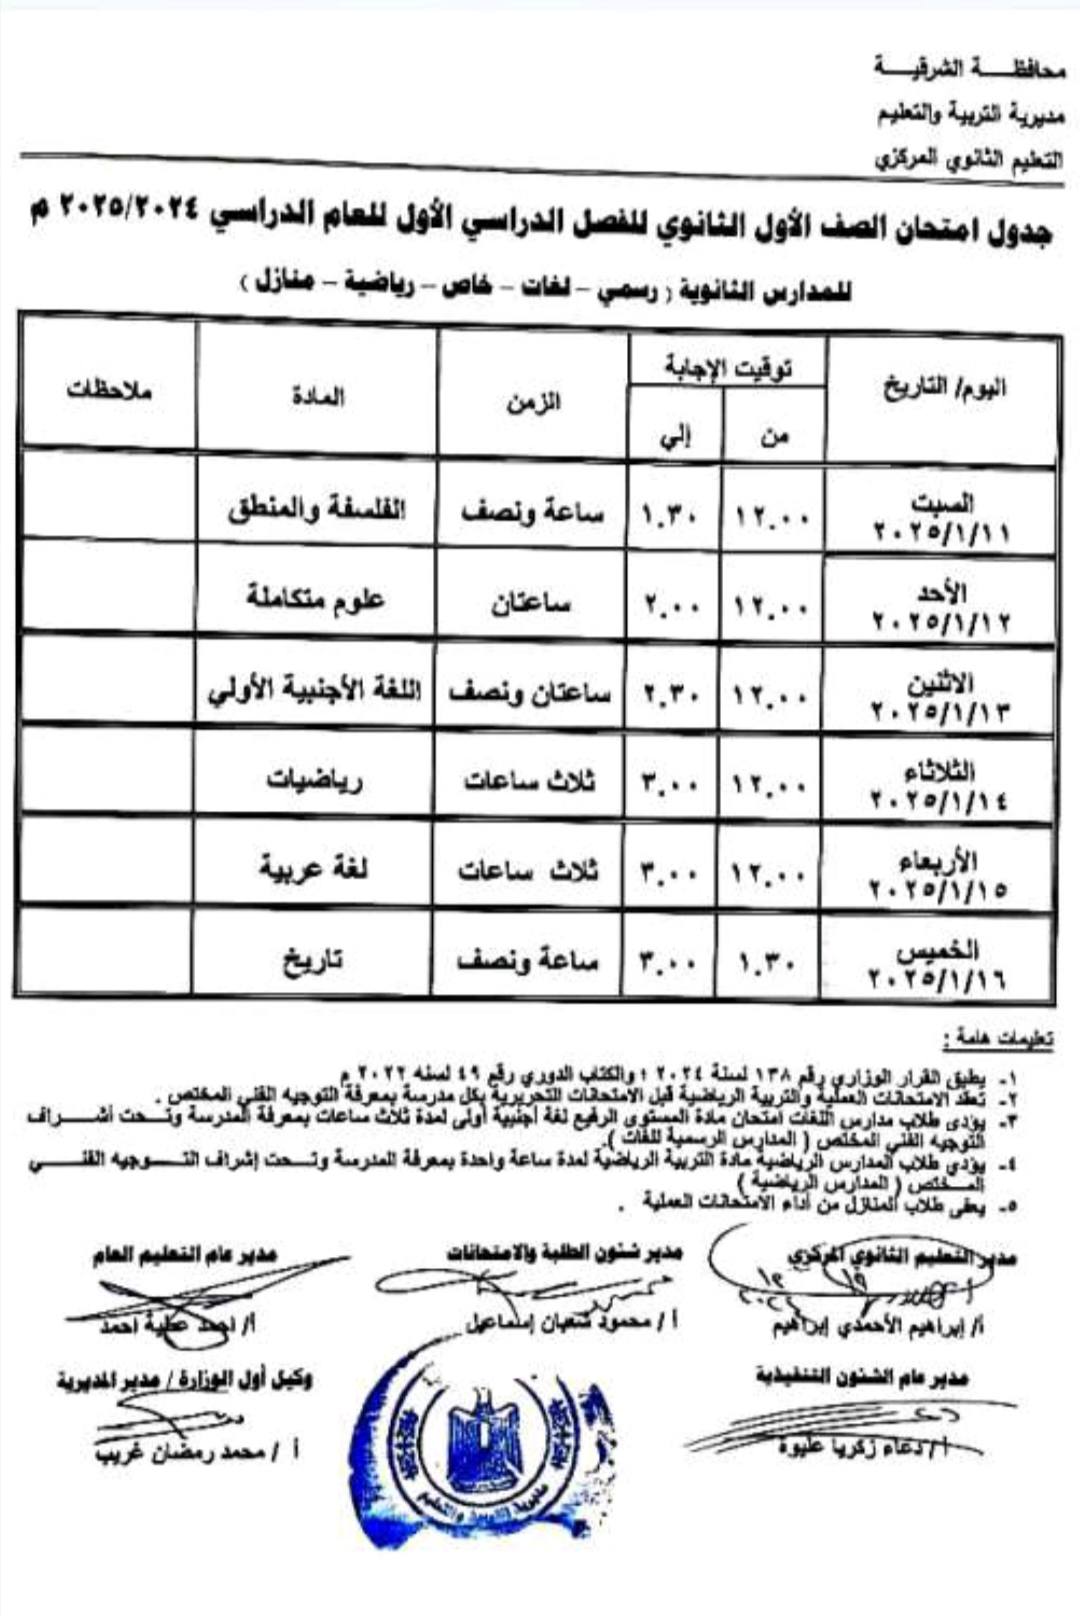 محافظة الشرقية
مديرية التربية والتعليم
التعليم الثانوي المركزي
جدول امتحان الصف الأول الثانوي للفصل الدراسي الأول للعام الدراسي ٢٠٢٥/٢٠٢٤ م
للمدارس الثانوية ( رسمي - لغات - خاص - رياضية - منازل )
اليوم/ التاريخ توقيت الإجابة الزمن المادة ملاحظات
من إلي
السبت ٢٠٢٥/١/١١ ١٢.٠٠ ١.٣٠ ساعة ونصف الفلسفة والمنطق
الأحد ٢٠٢٥/١/١٢ ١٢.٠٠ ٢.٠٠ ساعتان علوم متكاملة
الاثنين ٢٠٢٥/١/١٣ ١٢.٠٠ ٢.٣٠ ساعتان ونصف اللغة الأجنبية الأولي
الثلاثاء ٢٠٢٥/١/١٤ ١٢.٠٠ ٣.٠٠ ثلاث ساعات رياضيات
الأربعاء ٢٠٢٥/١/١٥ ١٢.٠٠ ٣.٠٠ ثلاث ساعات لغة عربية
الخميس ٢٠٢٥/١/١٦ ١.٣٠ ٣.٠٠ ساعة ونصف تاريخ
تعليمات هامة :
١- يطبق القرار الوزاري رقم ١٣٨ لسنة ٢٠٢٤ ؛ والكتاب الدوري رقم ٤٩ لسنه ٢٠٢٢ م
٢- تعقد الامتحانات العملية والتربية الرياضية قبل الامتحانات التحريرية بكل مدرسة بمعرفة التوجيه الفني المختص .
٣- يؤدى طلاب مدارس اللغات امتحان مادة المستوى الرفيع لغة أجنبية أولى لمدة ثلاث ساعات بمعرفة المدرسة وتحت أشراف
التوجيه الفني المختص ( المدارس الرسمية للغات ).
٤- يؤدي طلاب المدارس الرياضية مادة التربية الرياضية لمدة ساعة واحدة بمعرفة المدرسة وتحت إشراف التوجيه الفني
المختص ( المدارس الرياضية )
٥- يعفى طلاب المنازل من أداء الامتحانات العملية .
مدير التعليم الثانوي المركزي مدير شئون الطلبة والامتحانات مدير عام التعليم العام
أ/ إبراهيم الأحمدي إبراهيم أ / محمود شعبان إسماعيل أ/ احمد عطية احمد
مدير عام الشئون التنفيذية وكيل أول الوزارة / مدير المديرية
أ/ دعاء زكريا عليوة أ / محمد رمضان غريب
مديرية التربية والتعليم